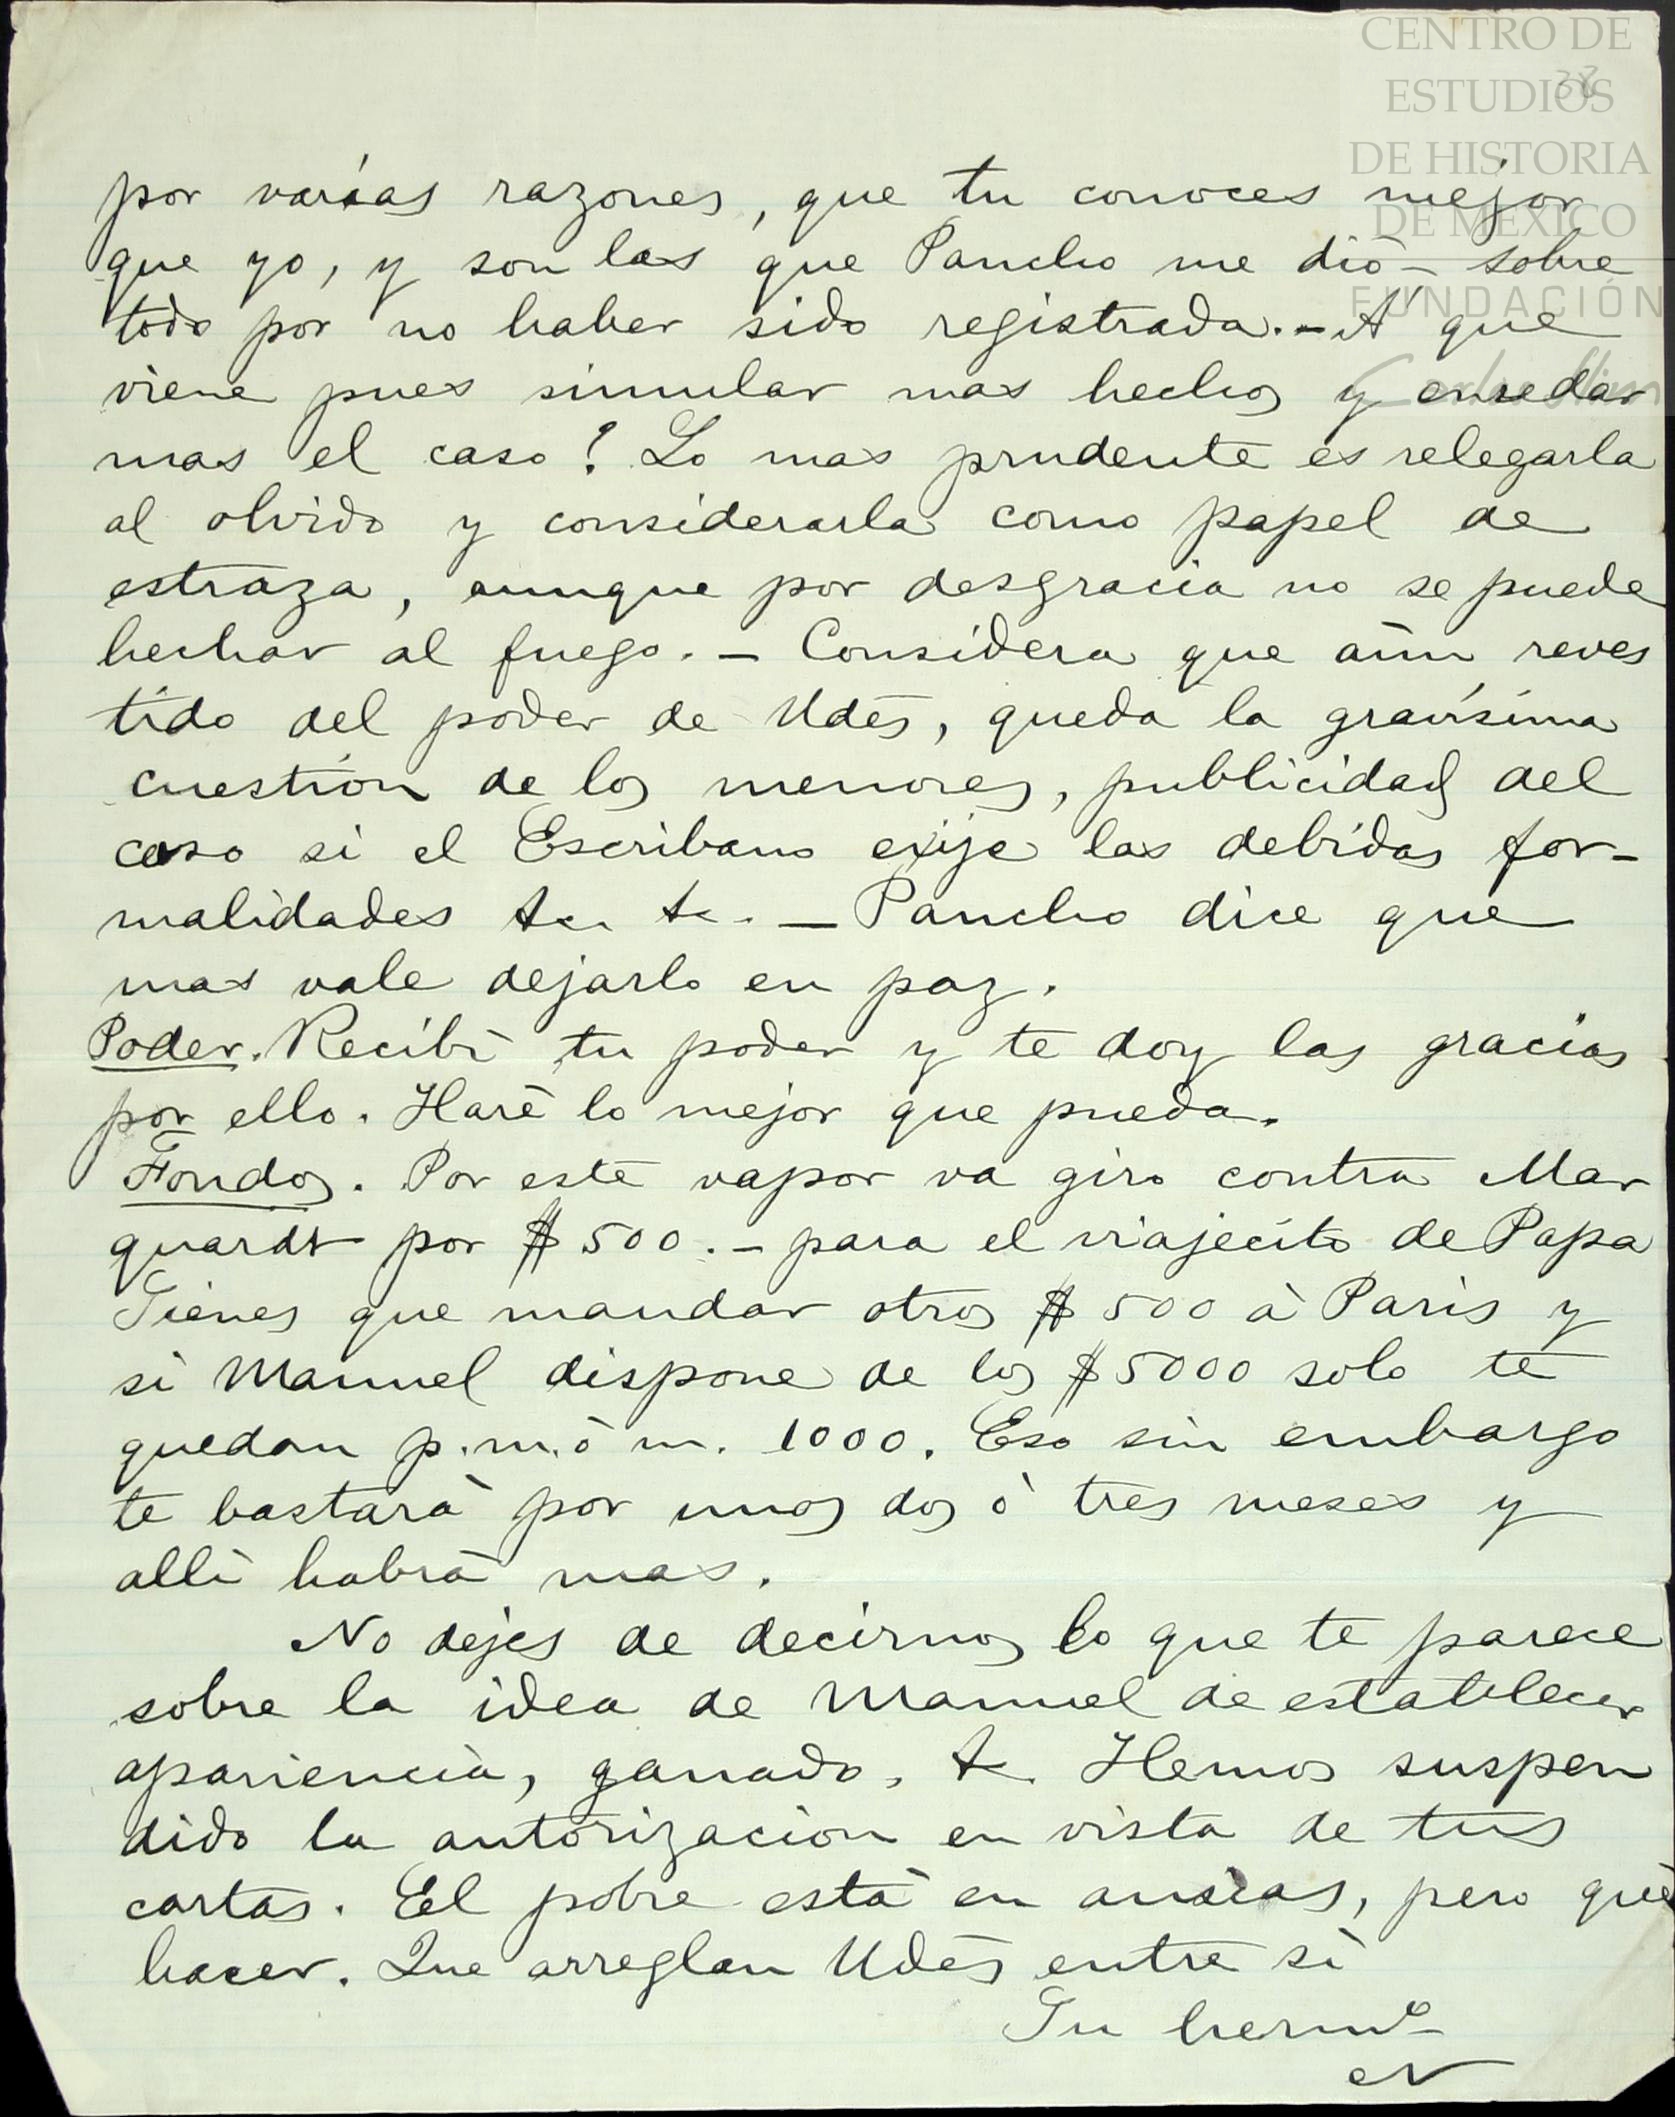 CENTRO DE
ESTUDIOS
DE HISTORIA
DE MÉXICO
FUNDACIÓN
Carlos Slim
38
por varias razones, que tu conoces mejor
que yo, y son las que Pancho me diò – sobre
todo por no haber sido registrada. – A' que
viene pues simular mas hechos y enredar
mas el caso? Lo mas prudente es relegarla
al olvido y considerarla como papel de
estraza, aunque por desgracia no se puede
hechar al fuego. – Considera que aùn reves
tido del poder de Udes, queda la gravísima
cuestion de los menores, publicidad del
caso si el Escribano exije las debidas for-
malidades &c. &c. – Pancho dice que
mas vale dejarlo en paz.
Poder. Recibì tu poder y te doy las gracias
por ello. Harè lo mejor que pueda.
Fondos. Por este vapor va giro contra Mar
quardt por $500. – para el viajecito de Papa
Tienes que mandar otros $500 à Paris y
si Manuel dispone de los $5000 solo te
quedan p. m. ò m. 1000. Eso sin embargo
te bastarà por unos dos ò tres meses y
allì habrà mas.
No dejes de decirnos lo que te parece
sobre la idea de Manuel de establecer
apariencia, ganado, &. Hemos suspen
dido la autorizacion en vista de tus
cartas. El pobre està en ansias, pero què
hacer. Que arreglan Udes entre sì
Tu hermo
N